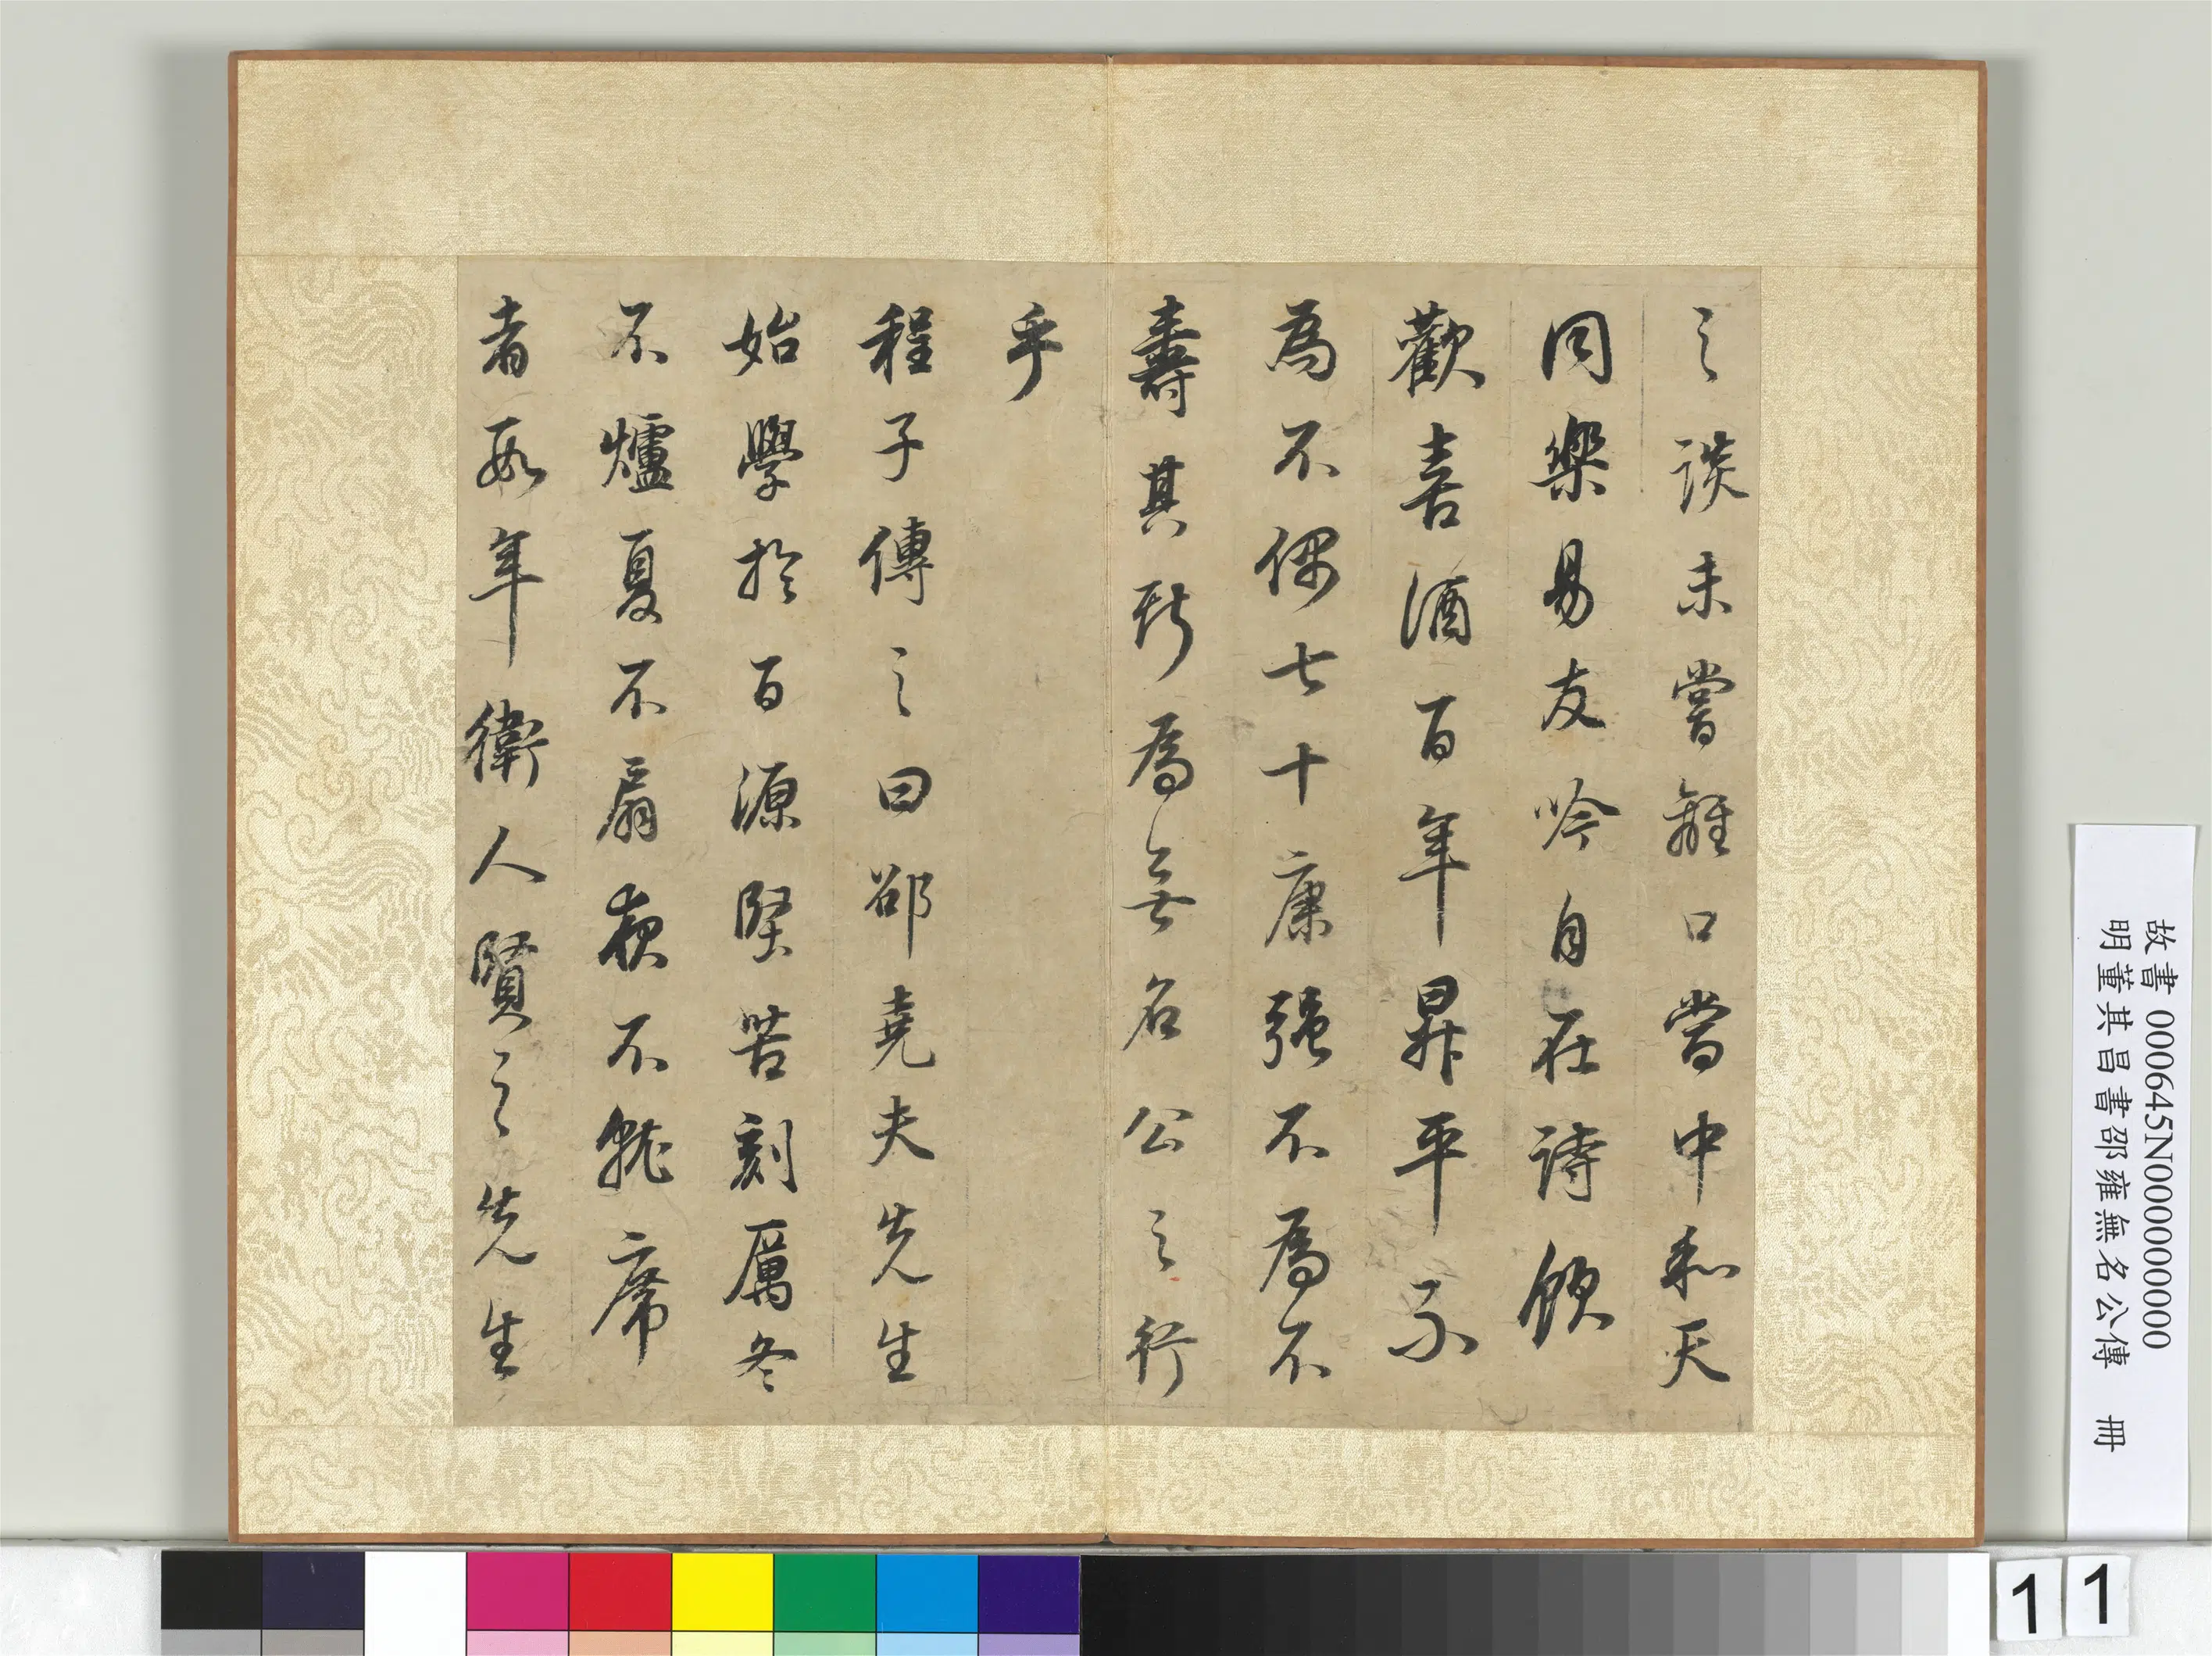 之談未嘗離口當中和天
同樂易友吟自在詩飲
歡喜酒百年昇平不
為不偶七十康強不為不
壽其斯為無名公之行
乎
程子傳之曰邵堯夫先生
始學於百源堅苦刻厲冬
不爐夏不扇夜不就席
者數年衛人賢之先生
故書 000645N000000000
明董其昌書邵雍無名公傳 冊
11